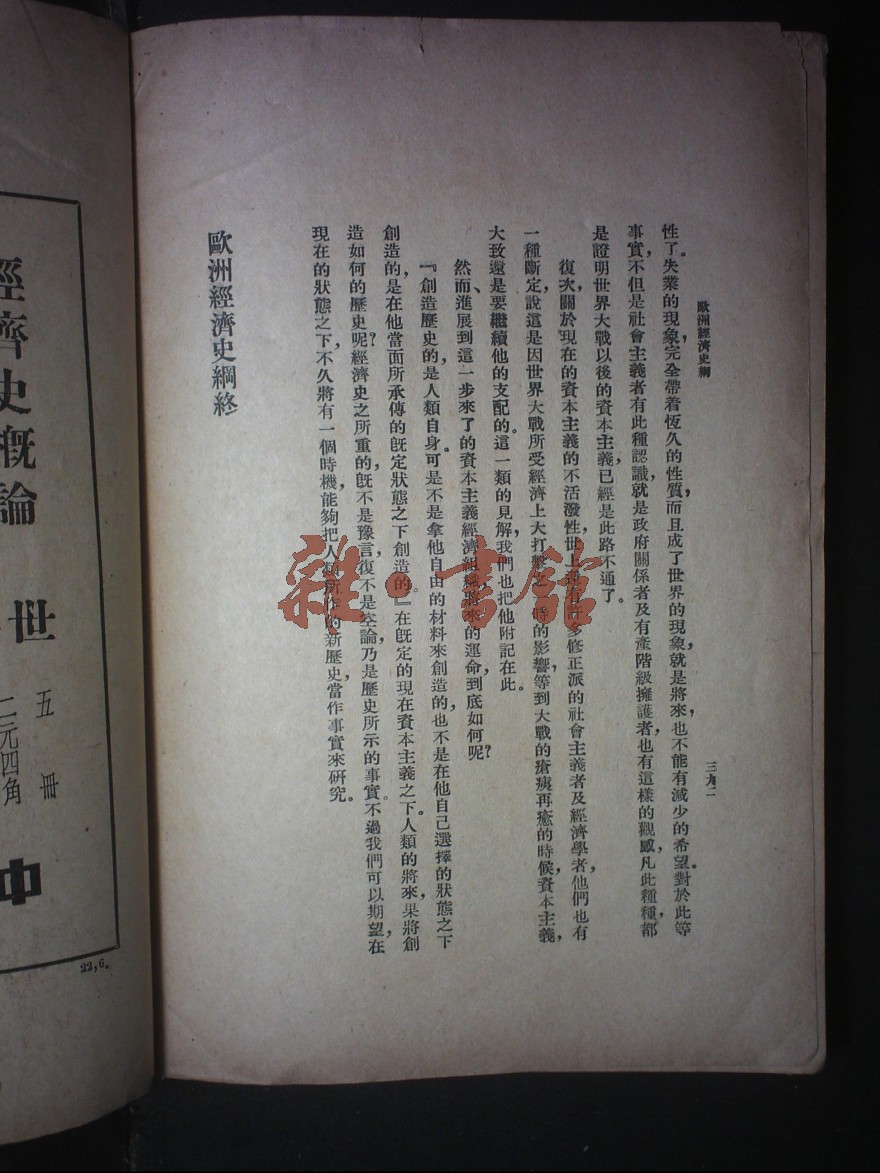 歐洲經濟史綱
三九二
性了。失業的現象,完全帶着恆久的性質,而且成了世界的現象,就是將來,也不能有減少的希望。對於此等
事實,不但是社會主義者有此種認識,就是政府關係者及有產階級擁護者,也有這樣的觀感,凡此種種,都
是證明世界大戰以後的資本主義,已經是此路不通了。
復次,關於現在的資本主義的不活潑性,世上還有許多修正派的社會主義者及經濟學者,他們也有
一種斷定說,這是因世界大戰所受經濟上大打擊之一時的影響,等到大戰的瘡痍再癒的時候,資本主義,
大致還是要繼續他的支配的。這一類的見解,我們也把他附記在此。
然而、進展到這一步來了的資本主義經濟組織,將來的運命,到底如何呢?
『創造歷史的,是人類自身。可是不是拿他自由的材料來創造的,也不是在他自己選擇的狀態之下
創造的,是在他當面所承傳的既定狀態之下創造的。』在既定的現在資本主義之下,人類的將來,果將創
造如何的歷史呢?經濟史之所重的,既不是豫言,復不是空論,乃是歷史所示的事實。不過我們可以期望,在
現在的狀態之下,不久將有一個時機,能夠把人類所作的新歷史,當作事實來研究。
歐洲經濟史綱終
經濟史概論
世
五冊
二元四角
中
22,6.
雜·書館